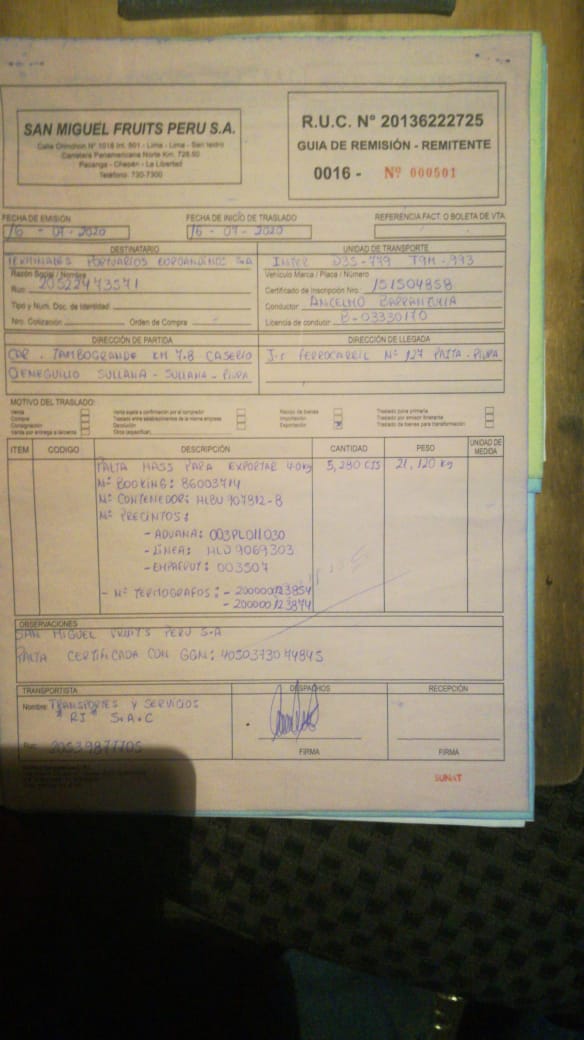 SAN MIGUEL FRUITS PERU S.A.
Calle Chinchon N° 1018 Int. 501 - Lima - Lima - San Isidro
Carretera Panamericana Norte Km. 728.50
Pacanga - Chepén - La Libertad
Teléfono: 730-7300
R.U.C. N° 20136222725
GUIA DE REMISIÓN - REMITENTE
0016 - Nº 000501
FECHA DE EMISIÓN
16 - 07 - 2020
FECHA DE INICIO DE TRASLADO
16 - 07 - 2020
REFERENCIA FACT. O BOLETA DE VTA
DESTINATARIO
TERMINALES PORTUARIOS EUROANDINOS S.A
Razón Social / Nombre
Ruc: 20522473571
Tipo y Num. Doc. de Identidad
Nro. Cotización Orden de Compra
UNIDAD DE TRANSPORTE
INTER D3S-779 T9M-993
Vehículo Marca / Placa / Número
Certificado de Inscripción Nro.: 151504858
Conductor ANCELMO BARRANZUELA
Licencia de conducir B-03330170
DIRECCIÓN DE PARTIDA
CAR. TAMBOGRANDE KM 7.8 CASERIO
CIENEGUILLO SULLANA - SULLANA - PIURA
DIRECCIÓN DE LLEGADA
Jr FERROCARRIL N° 127 PAITA - PIURA
MOTIVO DEL TRASLADO:
Venta
Compra
Consignación
Venta por entrega a terceros
Venta sujeta a confirmación por el comprador
Traslado entre establecimientos de la misma empresa
Devolución
Otros (especificar)
Recojo de bienes
Importación
Exportación X
Traslado zona primaria
Traslado por emisor itinerante
Traslado de bienes para transformación
ITEM CODIGO DESCRIPCIÓN CANTIDAD PESO UNIDAD DE MEDIDA
PALTA HASS PARA EXPORTAR 4.0kg 5,280 CJS 21,120 kg
N° BOOKING: 86003714
N° CONTENEDOR: HLBU 907812-8
N° PRECINTOS:
- ADUANA: 003PL011030
- LÍNEA: HLD9069303
- EMPAFRUT: 003507
- N° TERMOGRAFOS: - 200000123854
- 200000123874
OBSERVACIONES
SAN MIGUEL FRUITS PERU S.A
PALTA CERTIFICADA CON GGN: 4050373044845
TRANSPORTISTA
Nombre: TRANSPORTES Y SERVICIOS
" RJ " S.A.C
Ruc: 20539877705
DESPACHOS
FIRMA
RECEPCIÓN
FIRMA
SUNAT